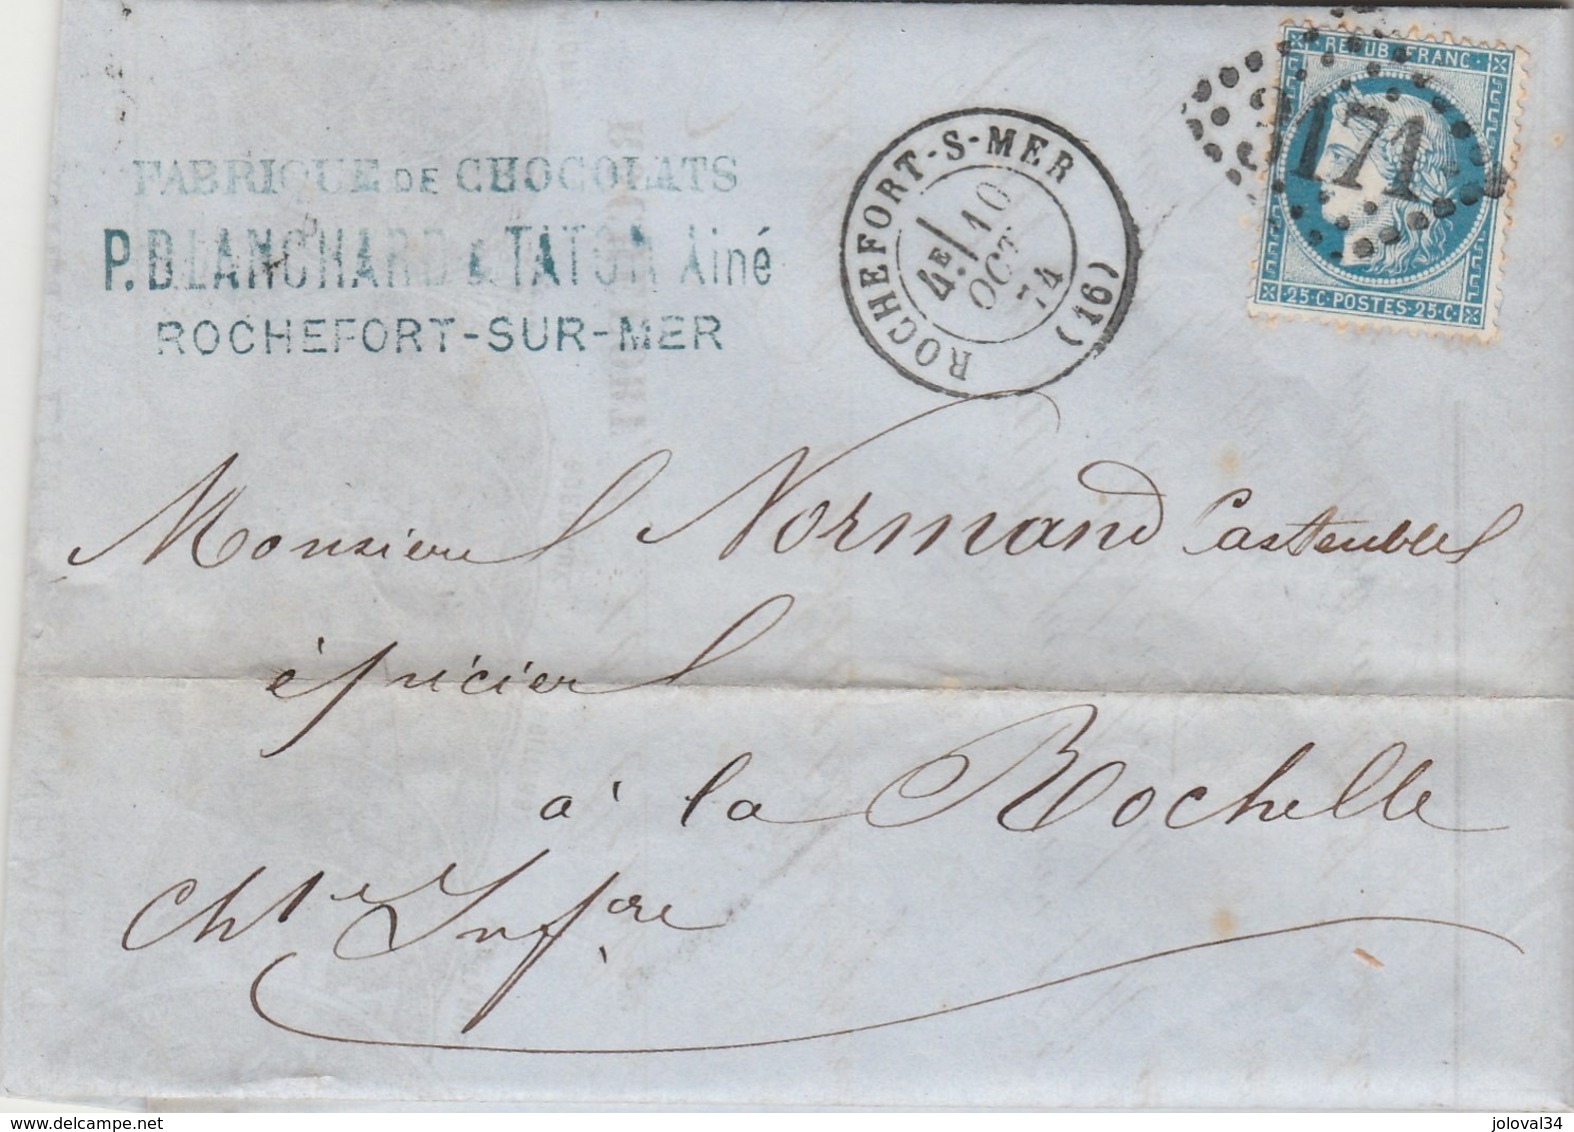 REPUB FRANC
3171
25·C·POSTES·25·C·
ROCHEFORT-S-MER
(16)
4E 10
OCT
74
FABRIQUE DE CHOCOLATS
P. BLANCHARD & TATON Ainé
ROCHEFORT-SUR-MER
Monsieur Normand Castenbl
épicier
à la Rochelle
Chte Infre
www.delcampe.net
joloval34